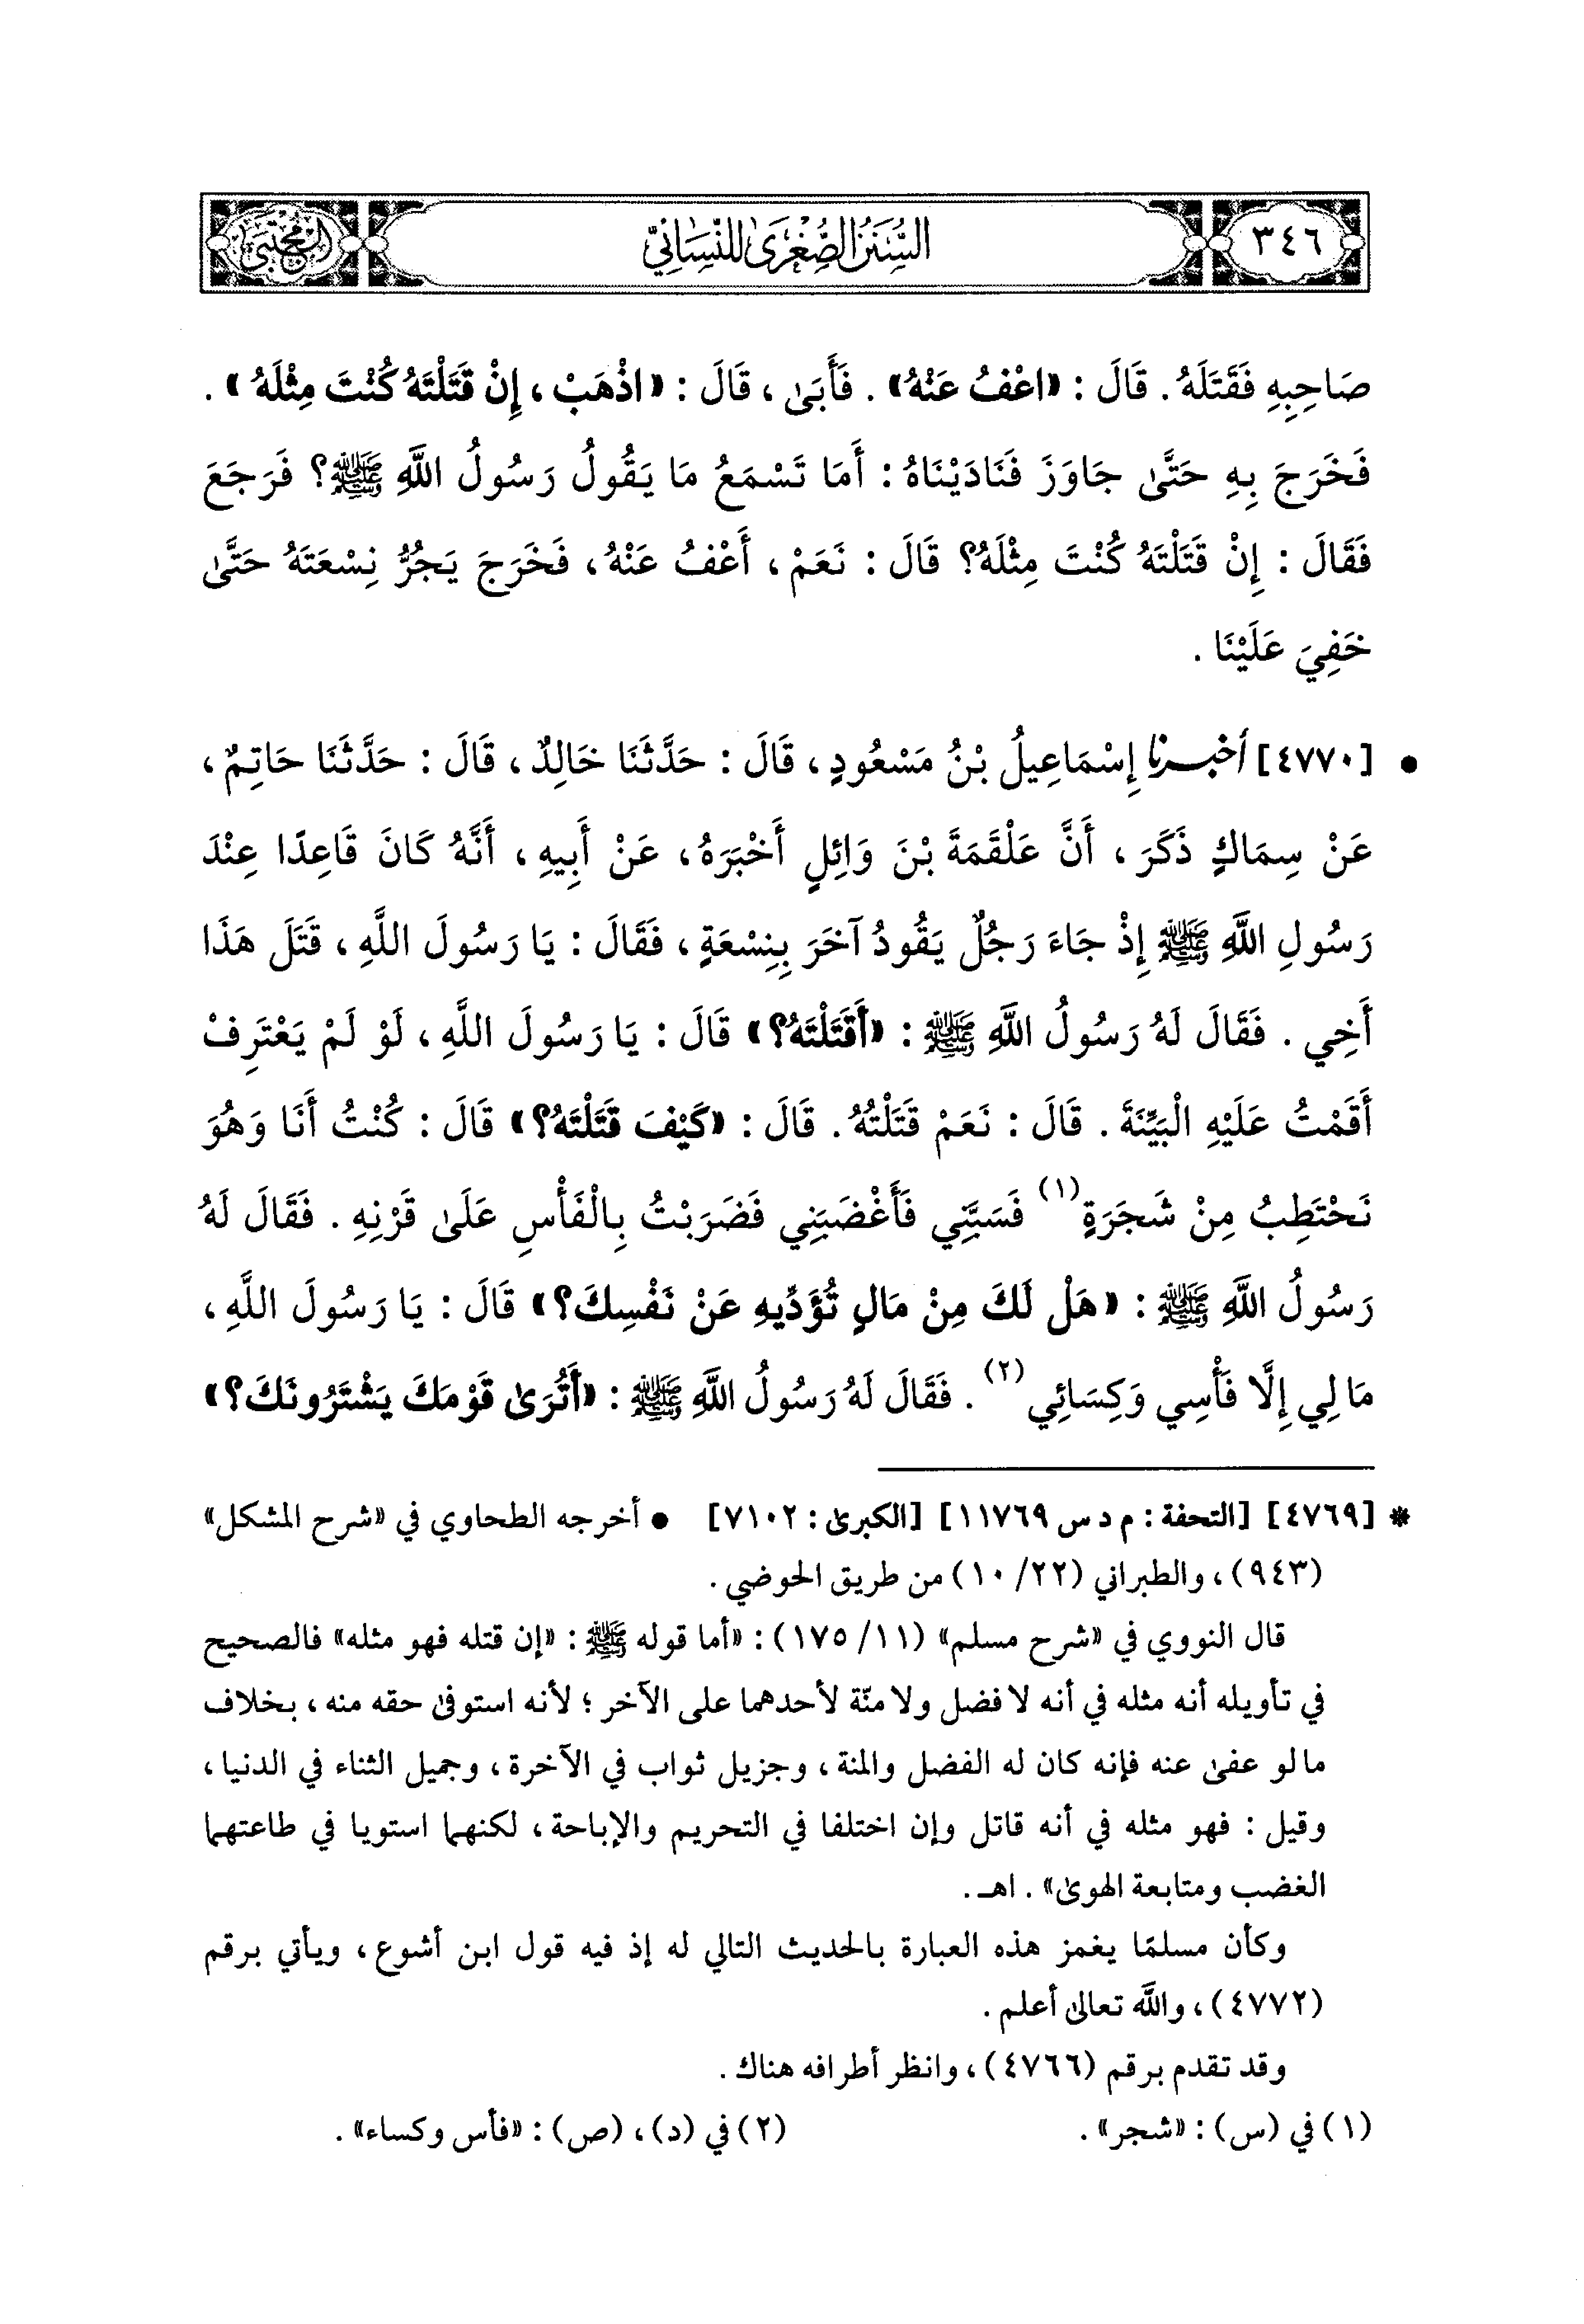 ٣٤٦
السُّنَنُ الصُّغْرَىٰ لِلنَّسَائِيِّ
المجتبى
صَاحِبِهِ فَقَتَلَهُ. قَالَ: «اعْفُ عَنْهُ». فَأَبَىٰ، قَالَ: «اذْهَبْ، إِنْ قَتَلْتَهُ كُنْتَ مِثْلَهُ».
فَخَرَجَ بِهِ حَتَّىٰ جَاوَزَ فَنَادَيْنَاهُ: أَمَا تَسْمَعُ مَا يَقُولُ رَسُولُ اللَّهِ ﷺ؟ فَرَجَعَ
فَقَالَ: إِنْ قَتَلْتَهُ كُنْتَ مِثْلَهُ؟ قَالَ: نَعَمْ، أَعْفُ عَنْهُ، فَخَرَجَ يَجُرُّ نِسْعَتَهُ حَتَّىٰ
خَفِيَ عَلَيْنَا.
• [٤٧٧٠] أَخْبَرَنَا إِسْمَاعِيلُ بْنُ مَسْعُودٍ، قَالَ: حَدَّثَنَا خَالِدٌ، قَالَ: حَدَّثَنَا حَاتِمٌ،
عَنْ سِمَاكٍ ذَكَرَ، أَنَّ عَلْقَمَةَ بْنَ وَائِلٍ أَخْبَرَهُ، عَنْ أَبِيهِ، أَنَّهُ كَانَ قَاعِدًا عِنْدَ
رَسُولِ اللَّهِ ﷺ إِذْ جَاءَ رَجُلٌ يَقُودُ آخَرَ بِنِسْعَةٍ، فَقَالَ: يَا رَسُولَ اللَّهِ، قَتَلَ هَذَا
أَخِي. فَقَالَ لَهُ رَسُولُ اللَّهِ ﷺ: «أَقَتَلْتَهُ؟» قَالَ: يَا رَسُولَ اللَّهِ، لَوْ لَمْ يَعْتَرِفْ
أَقَمْتُ عَلَيْهِ الْبَيِّنَةَ. قَالَ: نَعَمْ قَتَلْتُهُ. قَالَ: «كَيْفَ قَتَلْتَهُ؟» قَالَ: كُنْتُ أَنَا وَهُوَ
نَحْتَطِبُ مِنْ شَجَرَةٍ(١) فَسَبَّنِي فَأَغْضَبَنِي فَضَرَبْتُ بِالْفَأْسِ عَلَىٰ قَرْنِهِ. فَقَالَ لَهُ
رَسُولُ اللَّهِ ﷺ: «هَلْ لَكَ مِنْ مَالٍ تُؤَدِّيهِ عَنْ نَفْسِكَ؟» قَالَ: يَا رَسُولَ اللَّهِ،
مَا لِي إِلَّا فَأْسِي وَكِسَائِي(٢). فَقَالَ لَهُ رَسُولُ اللَّهِ ﷺ: «أَتُرَىٰ قَوْمَكَ يَشْتَرُونَكَ؟»
* [٤٧٦٩] [التحفة: م د س ١١٧٦٩] [الكبرىٰ: ٧١٠٢] • أخرجه الطحاوي في «شرح المشكل»
(٩٤٣)، والطبراني (٢٢/ ١٠) من طريق الحوضي.
قال النووي في «شرح مسلم» (١١/ ١٧٥): «أما قوله ﷺ: «إن قتله فهو مثله» فالصحيح
في تأويله أنه مثله في أنه لا فضل ولا منّة لأحدهما على الآخر؛ لأنه استوفىٰ حقه منه، بخلاف
ما لو عفىٰ عنه فإنه كان له الفضل والمنة، وجزيل ثواب في الآخرة، وجميل الثناء في الدنيا،
وقيل: فهو مثله في أنه قاتل وإن اختلفا في التحريم والإباحة، لكنهما استويا في طاعتهما
الغضب ومتابعة الهوىٰ». اهـ.
وكأن مسلمًا يغمز هذه العبارة بالحديث التالي له إذ فيه قول ابن أشوع، ويأتي برقم
(٤٧٧٢)، واللَّه تعالىٰ أعلم.
وقد تقدم برقم (٤٧٦٦)، وانظر أطرافه هناك.
(١) في (س): «شجر».
(٢) في (د)، (ص): «فأس وكساء».